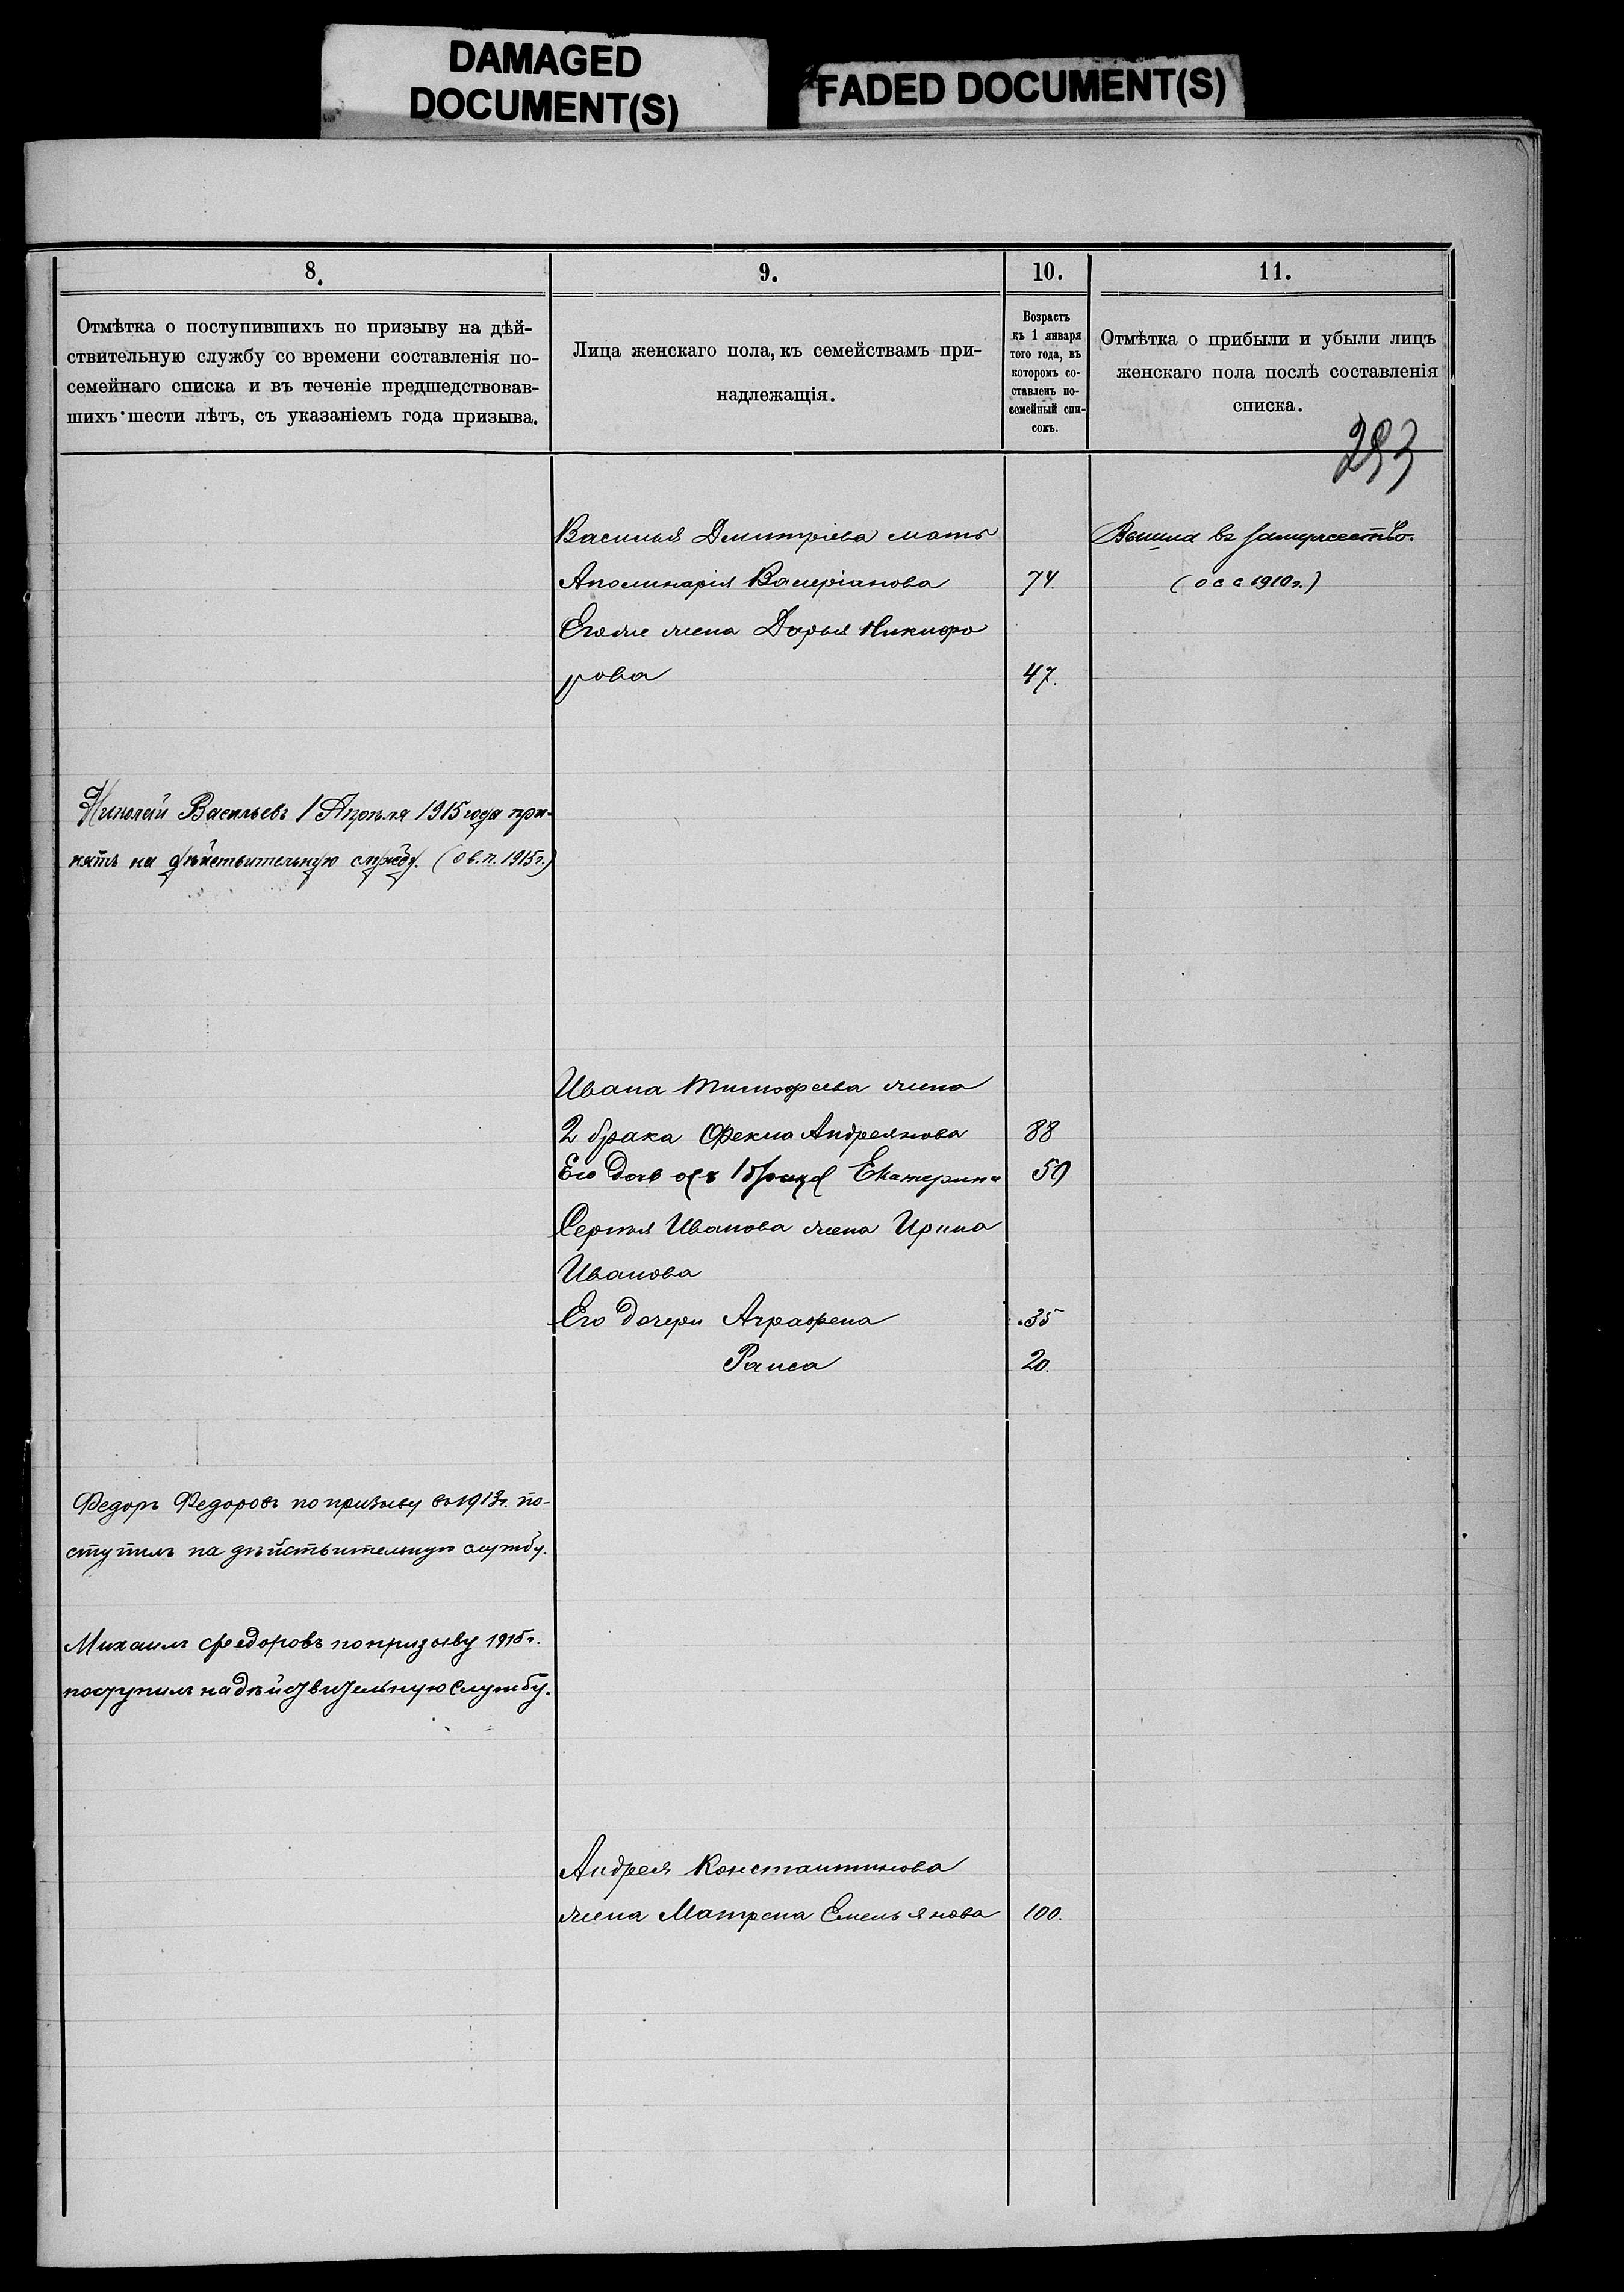 DAMAGED
DOCUMENT(S)
FADED DOCUMENT(S)
8.
9.
10.
11.
Отмѣтка о поступившихъ по призыву на дѣй-
ствительную службу со времени составленія по-
семейнаго списка и въ теченіе предшедствовав-
шихъ шести лѣтъ, съ указаніемъ года призыва.
Лица женскаго пола, къ семействамъ при-
надлежащія.
Возрастъ
къ 1 января
того года, въ
которомъ со-
ставленъ по-
семейный спи-
сокъ.
Отмѣтка о прибыли и убыли лицъ
женскаго пола послѣ составленія
списка.
293
Василья Дмитріева мать
Вышла въ замужество.
Аполинарія Валеріанова 74.
(о с с 1910 г.)
Его же жена Дарья Никифо
рова 47.
Николай Васильевъ 1 Апрѣля 1915 года при-
нятъ на дѣйствительную службу. (о в. п. 1915 г.)
Ивана Тимофеева жена
2 брака Фекла Андреянова 88
Его дочь отъ 1 брака Екатерина 59
Сергѣя Иванова жена Ирина
Иванова
Его дочери Аграфена 35
Раиса 20.
Федоръ Федоровъ по призыву въ 1913 г. по-
ступилъ на дѣйствительную службу.
Михаилъ Федоровъ по призыву 1915 г.
поступилъ на дѣйствительную службу.
Андрея Константинова
жена Матрена Емельянова 100.